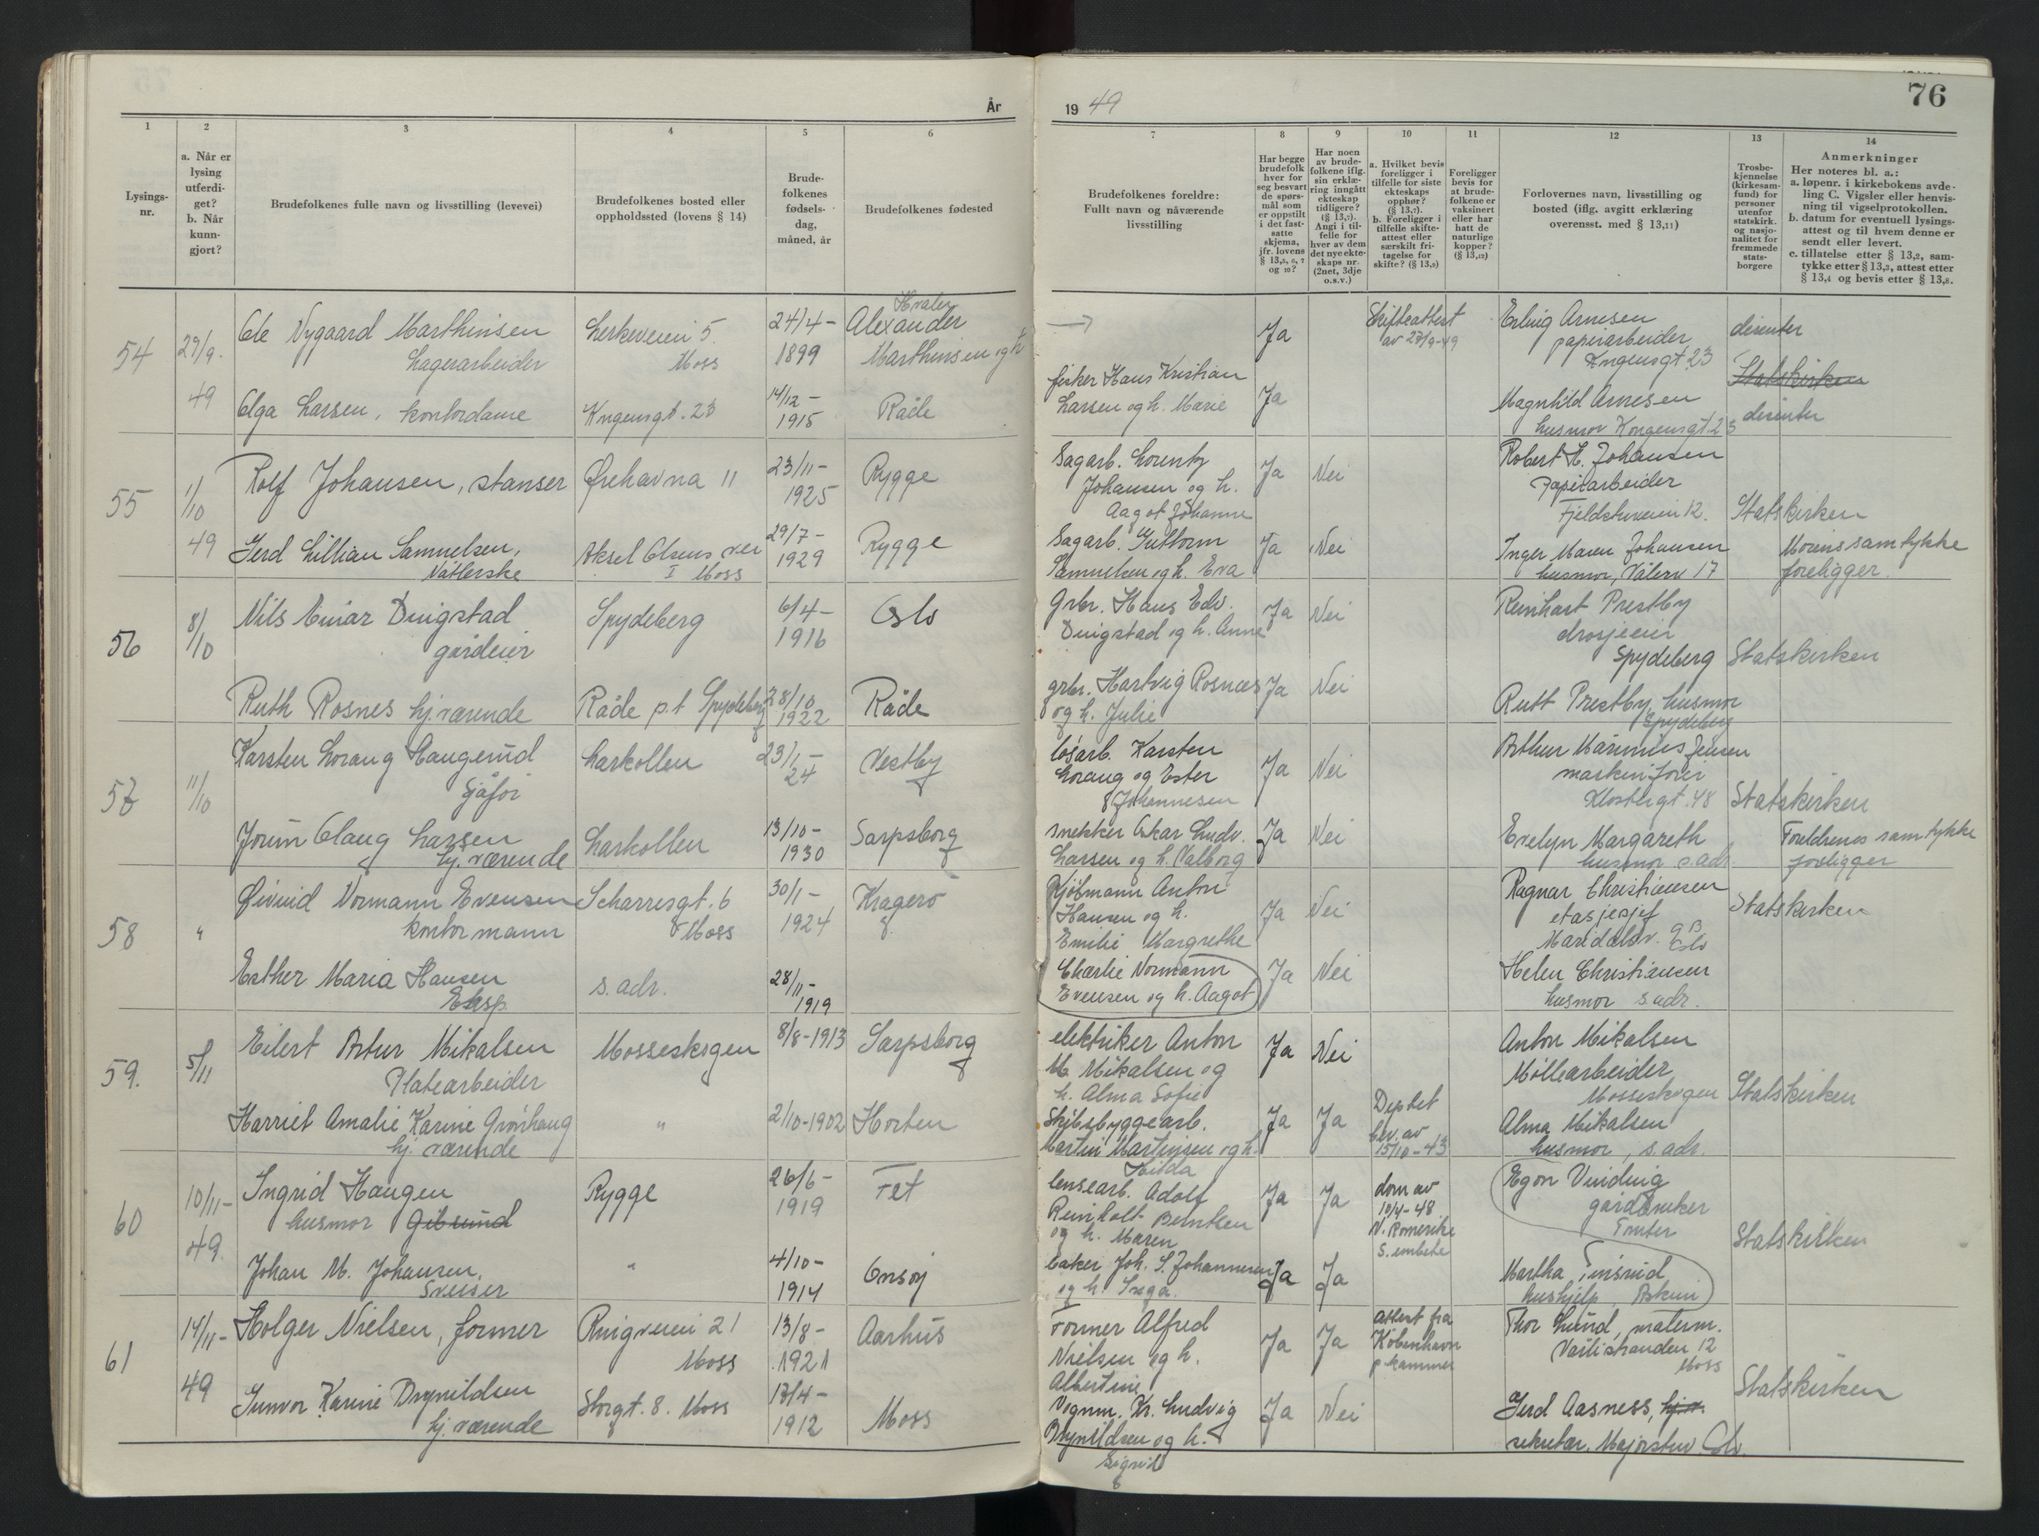 År
19 49
76
1
2
3
4
5
6
7
8
9
10
11
12
13
14
Lysings-
nr.
a. Når er
lysing
utferdi-
get?
b. Når
kunn-
gjort?
Brudefolkenes fulle navn og livsstilling (levevei)
Brudefolkenes bosted eller
oppholdssted (lovens § 14)
Brude-
folkenes
fødsels-
dag,
måned, år
Brudefolkenes fødested
Brudefolkenes foreldre:
Fullt navn og nåværende
livsstilling
Har begge
brudefolk
hver for
seg besvart
de spørs-
mål som
er oppstilt
i det fast-
satte
skjema,
jfr. lovens
§ 13,5, 6, 7
og 10?
Har noen
av brude-
folkene iflg.
sin erklæ-
ring inngått
ekteskap
tidligere?
(§ 13,7).
Angi i til-
felle for
hver av dem
det nye ekte-
skaps nr.
(2net, 3dje
o.s.v.)
a. Hvilket bevis
foreligger i
tilfelle for siste
ekteskaps
opphør?
(§ 13,7).
b. Foreligger i
tilfelle skifte-
attest eller
særskilt fri-
tagelse for
skifte? (§ 13,9)
Foreligger
bevis for
at brude-
folkene er
vaksinert
eller har
hatt de
naturlige
kopper?
(§ 13,12)
Forlovernes navn, livsstilling og
bosted (iflg. avgitt erklæring
overensst. med § 13,11)
Trosbe-
kjennelse
(kirkesam-
fund) for
personer
utenfor
statskirk.
og nasjo-
nalitet for
fremmede
stats-
borgere
Anmerkninger
Her noteres bl. a.:
a. løpenr. i kirkebokens avde-
ling C. Vigsler eller henvis-
ning til vigselprotokollen.
b. datum for eventuell lysings-
attest og til hvem denne er
sendt eller levert.
c. tillatelse etter § 13,2, sam-
tykke etter § 13,3, attest etter
§ 13,4 og bevis etter § 13,8.
54
29/9-
49
Ole Nygaard Marthinsen
Lagerarbeider
Lerkeveien 5.
Moss
24/4-
1899
Hvaler
Alexander
Marthinsen og h
Ja
Skifteattest
av 27/9-49
Erling Arnesen
papirarbeider
Kngensgt. 23
disenter
Statskirken
Olga Larsen, kontordame
Kngensgt. 23
14/12-
1915
Råde
fisker Hans Kristian
Larsen og h. Marie
Ja
Magnhild Arnesen
husmor Kongensgt. 23
disenter
55
1/10
49
Rolf Johansen, stanser
Ørehavna 11
23/11-
1925
Rygge
Sagarb. Lorentz
Johansen og h.
Aagot Johanne
Ja
Nei
Robert H. Johansen
Papirarbeider
Fjeldstuveien 12.
Statskirken
Gerd Lillian Samuelsen,
Nåtlerske
Aksel Olsens vei
I Moss
29/7-
1929
Rygge
Sagarb. Guttorm
Samuelsen og h. Eva
Ja
Nei
Inger Maren Johansen
husmor, Vålerv 17
Morens samtykke
foreligger.
56
8/10
Nils Einar Dingstad
gårdeier
Spydeberg
6/4-
1916
Oslo
Grbr. Hans Edv.
Dingstad og h. Anne
Ja
Nei
Reinhart Prestby
drosjeeier
Spydeberg
Statskirken
Ruth Rosnes hj. værende
Råde p.t Spydeberg
28/10
1922
Råde
grbr. Hartvig Rosnæs
og h. Julie
Ja
Nei
Rutt Prestby, husmor
Spydeberg
57
11/10
Karsten Lorang Haugerud
Sjåfør
Larkollen
23/1-
24
Vestby
løsarb. Karsten
Lorang og Ester
Johannesen
Ja
Nei
Arthur Marinius Jensen
maskinfører
Klostergt. 48
Statskirken
Jorun Olaug Larsen
hj. værende
Larkollen
13/10-
1930
Sarpsborg
snekker Oskar Ludv.
Larsen og h. Valborg
Ja
Nei
Evelyn Margareth
husmor s. adr.
Foreldrenes samtykke
foreligger
58
"
Øivind Normann Evensen
kontormann
Scharresgt. 6
Moss
30/1-
1924
Kragerø
Sjømann Anton
Hansen og h.
Emilie Margrethe
Ja
Nei
Ragnar Christiansen
etasjesjef
Maridalsv. 9 B
Oslo
Statskirken
Esther Maria Hansen
Eksp.
s. adr.
28/11-
1919
Charlie Normann
Evensen og h. Aagot
Ja
Nei
Helen Christiansen
husmor s. adr.
59.
5/11
Eilert Artur Mikalsen
Platearbeider
Mosseskogen
8/8-1913
Sarpsborg
elektriker Anton
M. Mikalsen og
h. Alma Sofie
Ja
Nei
Anton Mikalsen
Møllearbeider
Mosseskogen
Statskirken
Harriet Amalie Karine Grønhaug
hj. værende
"
2/10-1902
Horten
Skibsbyggearb.
Martin Martinsen og h.
Hilda
Ja
Ja
Dep.tet
bev. av
15/10-43
Alma Mikalsen
husmor, s. adr.
60
10/11-
49.
Ingrid Haugen
husmor
Rygge
26/6-
1919
Fet
lensearb. Adolf
Reinholt Berntsen
og h. Maren
Ja
Ja
dom av
10/4-48
N. Romerike
s. embete
Egon Vinding
gårdbruker
Tomter
Statskirken
Johan M. Johansen,
Sveiser
"
4/10-
1914
Onsøy
baker Joh. S. Johannesen
og h. Inga.
Ja
Ja
Martha Finsrud
hushjelp, Askim
61
14/11-
49
Holger Nielsen, former
Ringveien 21
Moss
13/8-
1921
Aarhus
Former Alfred
Nielsen og h.
Albertine
Ja
Ja
Attest fra
København
p kammer
Thor Lund, materm.
Værlistranden 12
Moss
Statskirken
Gunvor Karine Brynildsen
hj. værende
Storgt. 8. Moss
17/4-
1912
Moss
Vognm. Kr. Ludvig
Brynildsen og h.
Sigrid
Ja
Nei
Gerd Aasness, hj. v.
sekretær. Majorstuv. Oslo